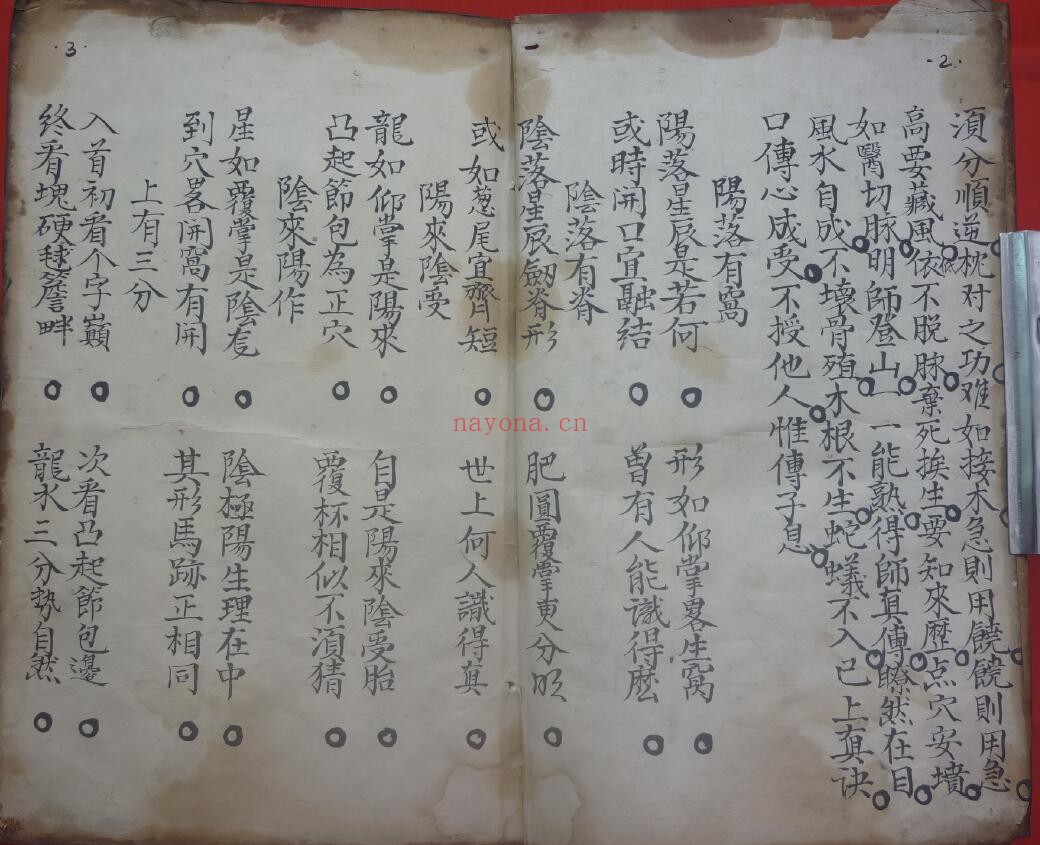 ·2·
須分順逆枕对之功难如接木急則用饒饒則用急
高要藏風低依不脱脉棄死挨生要知來歷点穴安墳
如醫切脉明師登山一一能熟得師真傳瞭然在目
風水自成不壞骨殖木根不生蛇蟻不入已上真訣
口傳心成受不授他人惟傳子息
陽落有窩
陽落星辰是若何 形如仰掌畧生窩
或時開口宜融結 曾有人能識得麽
陰落有脊
陰落星辰劔脊形 肥圓覆掌更分明
或如葱尾宜齊短 世上何人識得真
陽來陰受
龍如仰掌是陽來 自是陽來陰受胎
凸起節包為正穴 覆杯相似不須猜
陰來陽作
星如覆掌是陰 陰極陽生理在中
到穴畧開窩有開 其形馬跡正相同
上有三分
入首初看个字巔 次看凸起節包邊
終看塊硬毬簷畔 龍水三分勢自然
·3·
nayona.cn